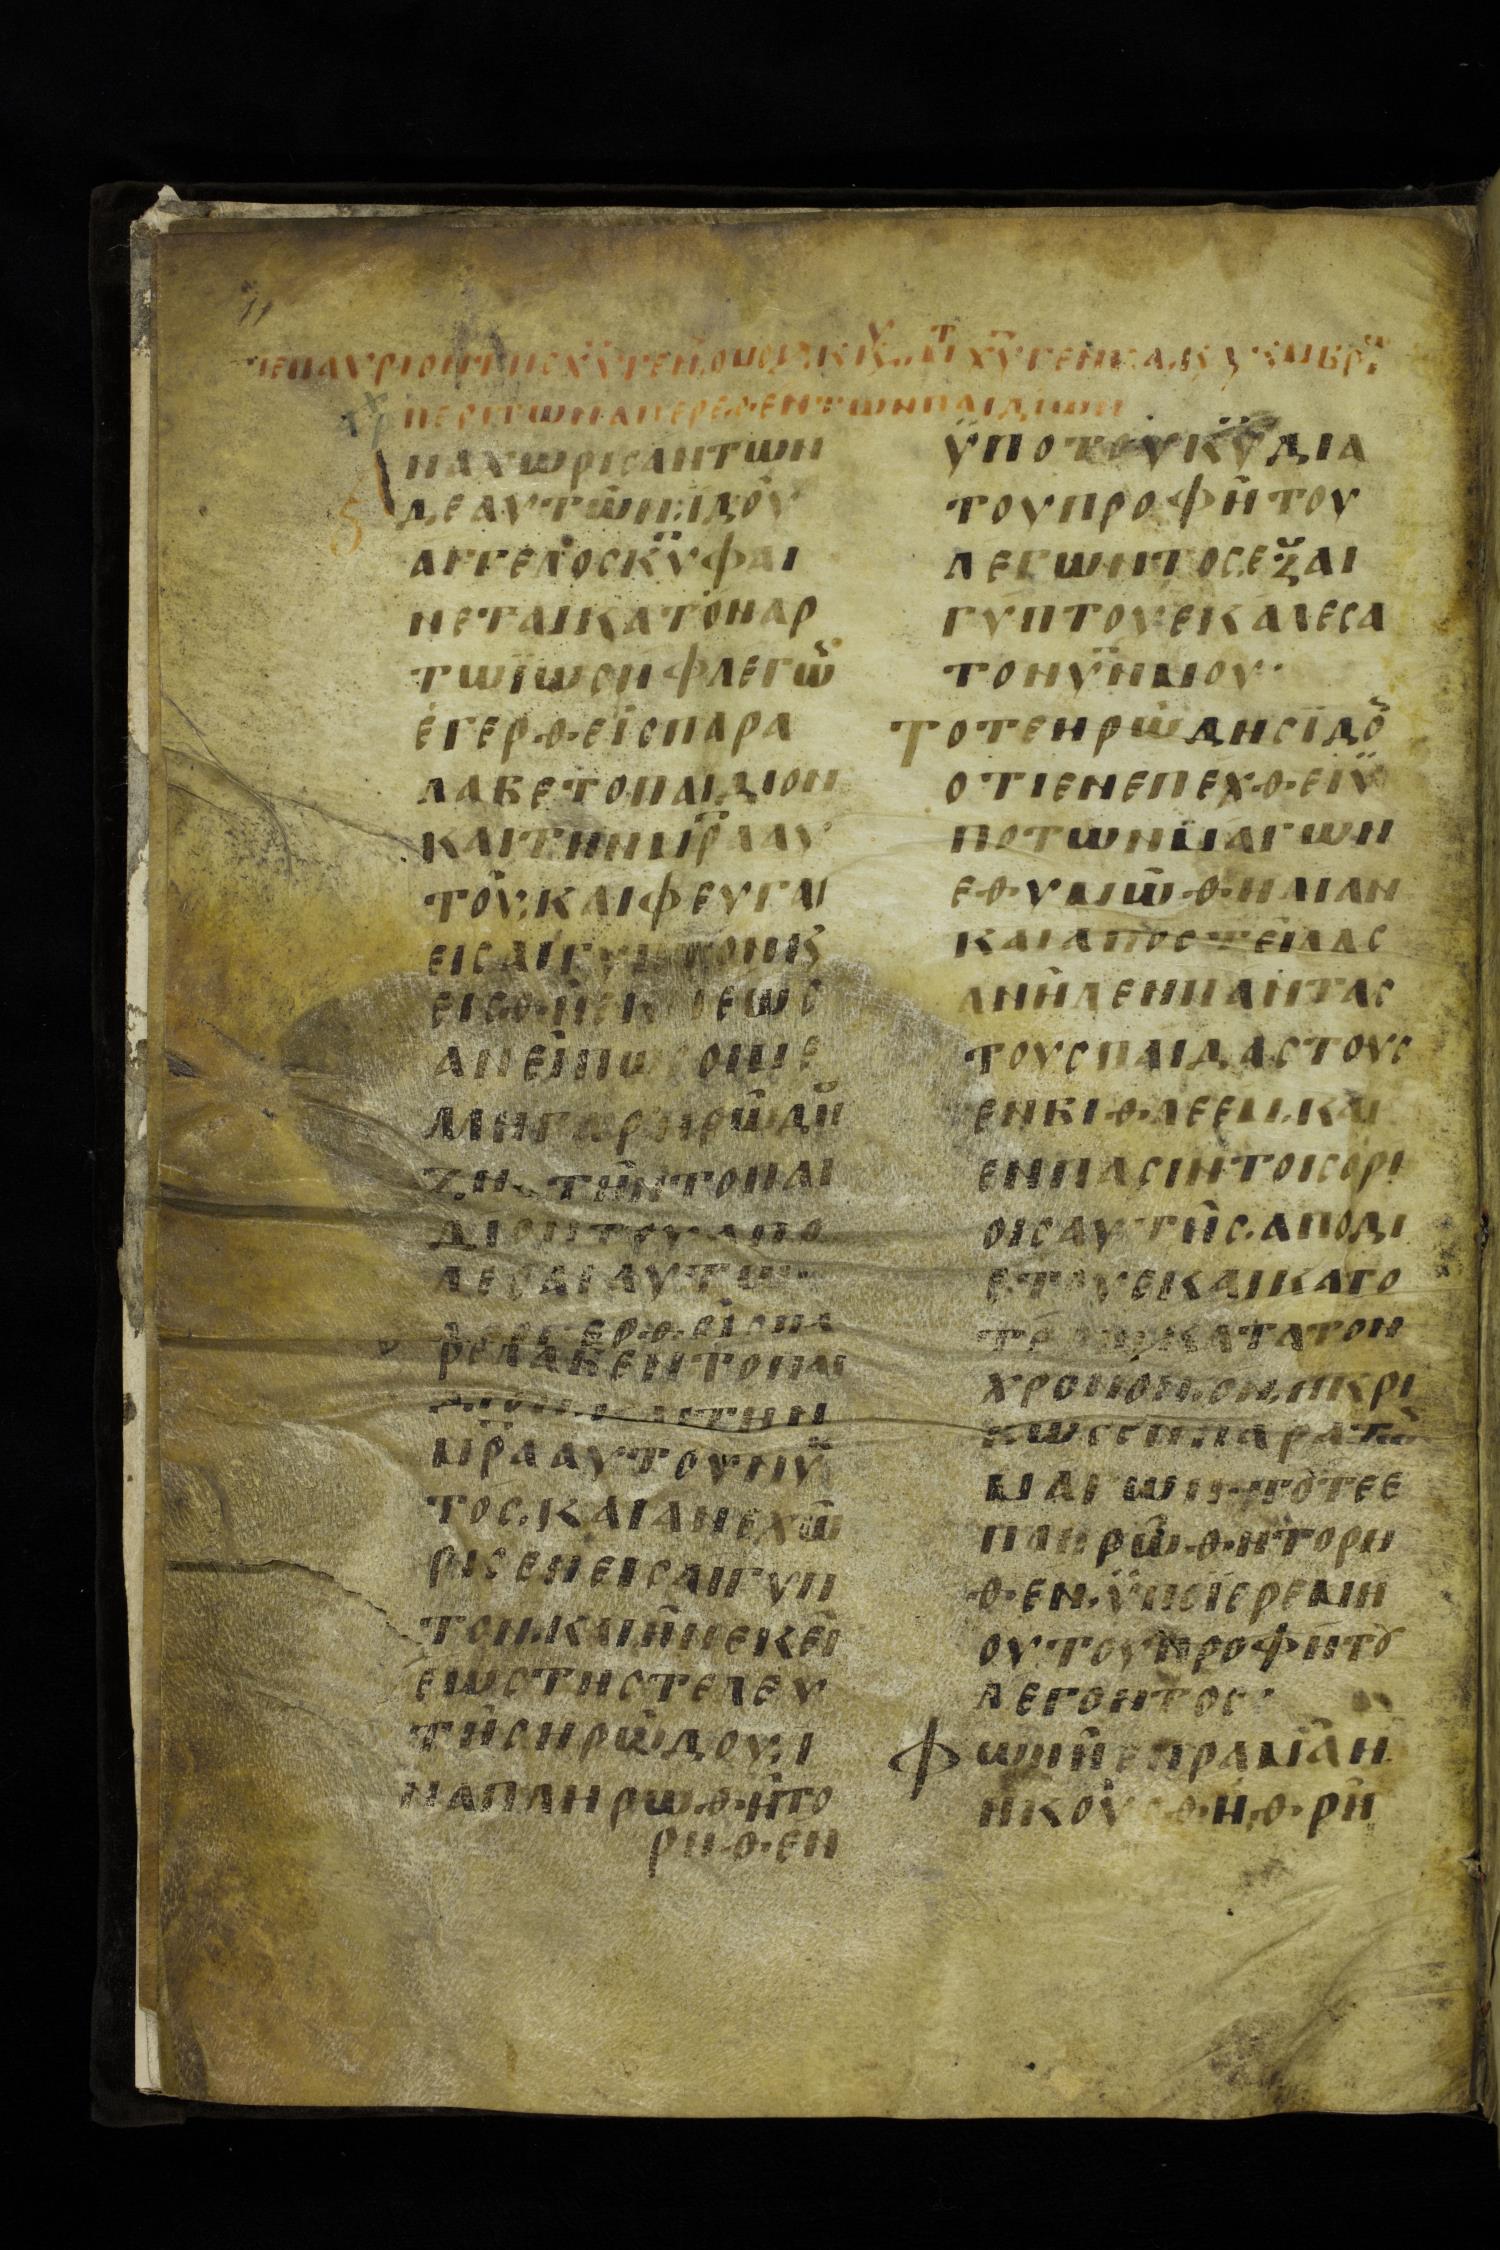 ΠΕΡΙΤΩΝΑΝΕΡΕΘΕΝΤΩΝΠΑΙΔΙΩΝ
ΝΑΧΩΡΙCΑΝΤΩΝ
ΔΕΑΥΤΩΝ.ΙΔΟΥ
ΑΓΓΕΛΟCΚΥΦΑΙ
ΝΕΤΑΙΚΑΤΟΝΑΡ
ΤΩΪΩCΗΦΛΕΓΩ
ΕΓΕΡΘΕΙCΠΑΡΑ
ΛΑΒΕΤΟΠΑΙΔΙΟΝ
ΚΑΙΤΗΝΜΡΑΑΥ
ΤΟΥ.ΚΑΙΦΕΥΓΑΙ
ΕΙCΑΙΓΥΠΤΟΝΚ
ΕΙCΘΗΕΚΙΕΩC
ΑΝΕΙΠΩCΟΙΜΕ
ΛΛΗΓΑΡΗΡΩΔΗ
ΖΗΤΗΝΤΟΠΑΙ
ΔΙΟΝΤΟΥΑΠΟ
ΛΕCΑΙΑΥΤΩ
ΡΕΛΑΒΕΝΤΟΠΑΙ
ΜΡΑΑΥΤΟΥΝΥ
ΤΟC.ΚΑΙΑΝΕΧΩ
ΡΙCΕΝΕΙCΑΙΓΥΠ
ΤΟΝ.ΚΑΙΗΝΕΚΕΙ
ΕΩCΤΗCΤΕΛΕΥ
ΤΗCΗΡΩΔΟΥ.Ι
ΝΑΠΛΗΡΩΘΗΤΟ
ΡΗΘΕΝ
ΫΠΟΤΟΥΚΥΔΙΑ
ΤΟΥΠΡΟΦΗΤΟΥ
ΛΕΓΩΝΤΟC.ΕΞΑΙ
ΓΥΠΤΟΥΕΚΑΛΕCΑ
ΤΟΝΫΝΜΟΥ·
ΤΟΤΕΗΡΩΔΗCΪΔΟ
ΟΤΙΕΝΕΠΕΧΘΕΙΫ
ΠΟΤΩΝΜΑΓΩΝ
ΕΘΥΜΩΘΗΛΙΑΝ
ΚΑΙΑΠΟCΤΕΙΛΑC
ΑΝΗΛΕΝΠΑΝΤΑC
ΤΟΥCΠΑΙΔΑCΤΟΥC
ΕΝΒΙΘΛΕΕΜ.ΚΑΙ
ΕΝΠΑCΙΝΤΟΙCΟΡΙ
ΟΙCΑΥΤΗC.ΑΠΟΔΙ
ΕΤΟΥCΚΑΙΚΑΤΟ
ΤΕΡΩΚΑΤΑΤΟΝ
ΧΡΟΝΟΝ.ΟΝ.ΗΚΡΙ
ΒΩCΕΝΠΑΡΑΤΩ
ΜΑΓΩΝ·ΤΟΤΕΕ
ΠΛΗΡΩΘΗΤΟΡΗ
ΘΕΝ.ΫΠΟΪΕΡΕΜΗ
ΟΥ.ΤΟΥΠΡΟΦΗΤΟ
ΛΕΓΟΝΤΟC·
ΦΩΝΗΕΝΡΑΜΑΝ
ΗΚΟΥCΘΗ.ΘΡΗ